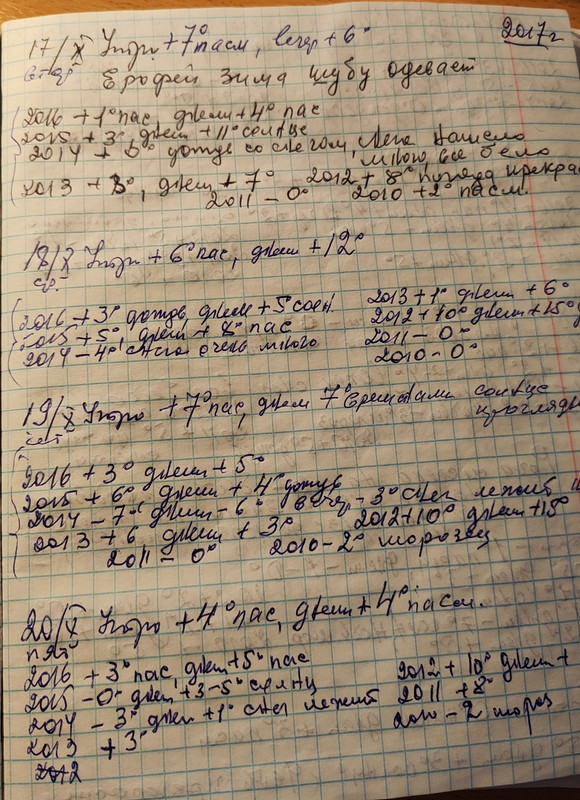 2017г
17/X Утро +7° пасм, вечер +6°
втор
Ерофей зима шубу одевает
2016 +1° пас днем +4° пас
2015 +3° днем +11° солнце
2014 + 5° дождь со снегом, снега нанесло
много, все бело
2013 + 3°, днем + 7° 2012 + 8° погода прекрас
2011 - 0° 2010 +2° пасм.
18/X Утро + 6° пас, днем +12°
ср.
2016 + 3° дождь, днем +5° солн. 2013 +1° днем + 6°
2015 + 5°, днем + 8° пас 2012 +10° днем +15°
2014 - 4° снега очень много 2011 - 0°
2010 - 0°
19/X Утро +7° пас, днем 7° временами солнце
чет проглядыв
2016 + 3° днем + 5°
2015 + 6° днем + 4° дождь
2014 - 7° днем - 6° вечер - 3° снег лежит
2013 + 6 днем + 3° 2012 +10° днем +18°
2011 - 0° 2010 - 2° морозец
20/X Утро +4° пас, днем +4° пасм.
пят
2016 + 3° пас, днем +5° пас 2012 + 10° днем +
2015 - 0° днем +3-5° солнц 2011 + 8°
2014 - 3° днем +1° снег лежит 2010 - 2 мороз
2013 + 3°
2012